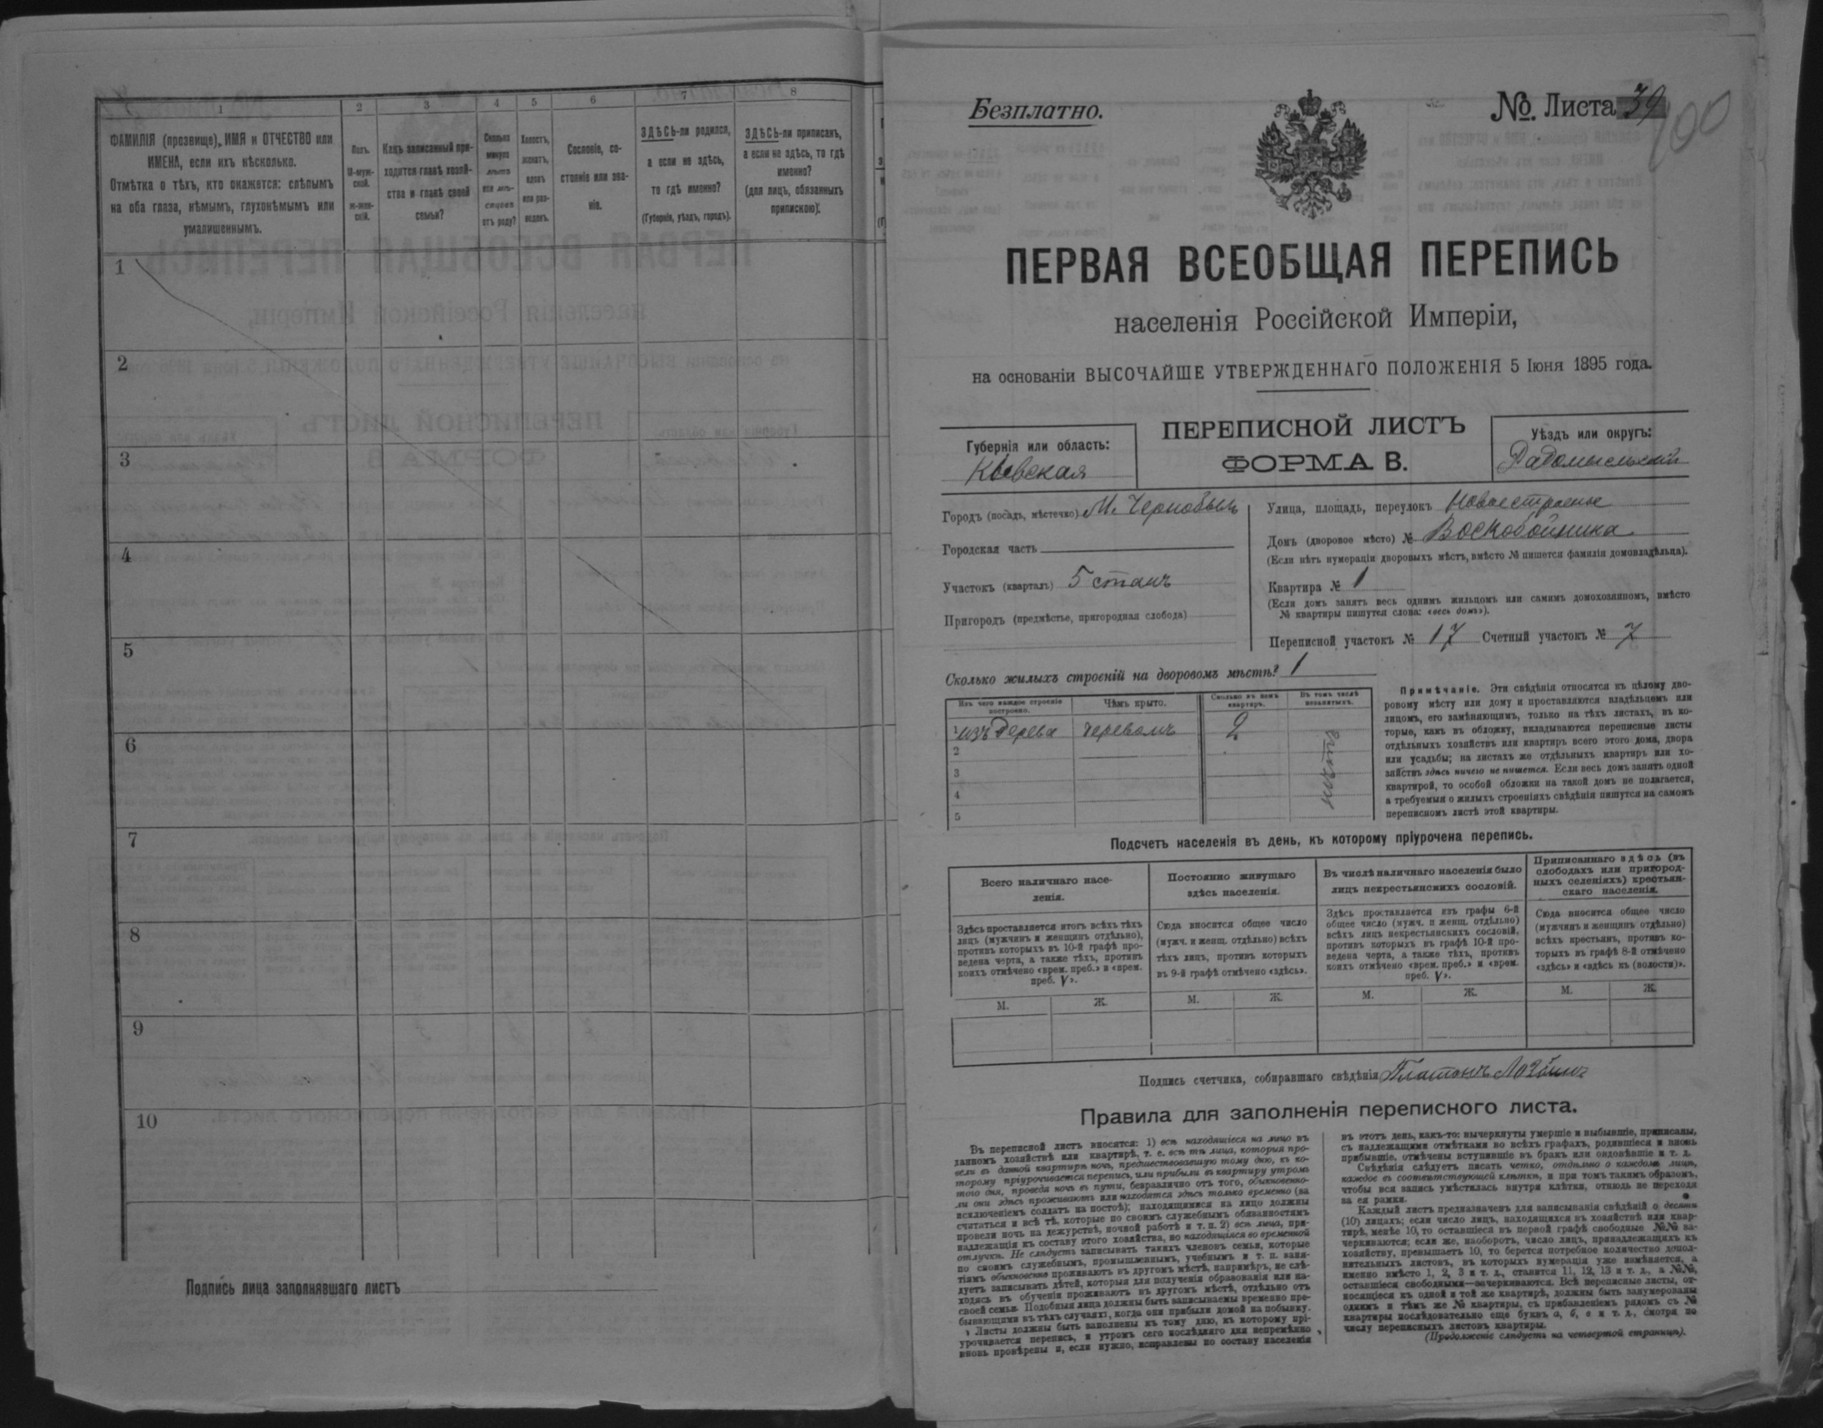 1
2
3
4
5
6
7
8
ФАМИЛІЯ (прозвище), ИМЯ и ОТЧЕСТВО или
ИМЕНА, если ихъ нѣсколько.
Отмѣтка о тѣхъ, кто окажется: слѣпымъ
на оба глаза, нѣмымъ, глухонѣмымъ или
умалишеннымъ.
Полъ.
М-муж-
ской.
Ж-жен-
скій.
Какъ записанный при-
ходится главѣ хозяй-
ства и главѣ своей
семьи?
Сколько
минуло
лѣтъ
или мѣ-
сяцевъ
отъ роду?
Холостъ,
женатъ,
вдовъ
или раз-
веденъ.
Сословіе, со-
стояніе или зва-
ніе.
ЗДѢСЬ-ли родился,
а если не здѣсь,
то гдѣ именно?
(Губернія, уѣздъ, городъ).
ЗДѢСЬ-ли приписанъ,
а если не здѣсь, то гдѣ
именно?
(для лицъ, обязанныхъ
припискою).
1
2
3
4
5
6
7
8
9
10
Подпись лица заполнявшаго листъ
Безплатно.
№ Листа 39
100
ПЕРВАЯ ВСЕОБЩАЯ ПЕРЕПИСЬ
населенія Россійской Имперіи,
на основаніи ВЫСОЧАЙШЕ УТВЕРЖДЕННАГО ПОЛОЖЕНІЯ 5 Іюня 1895 года.
Губернія или область:
Кіевская
ПЕРЕПИСНОЙ ЛИСТЪ
ФОРМА В.
Уѣздъ или округъ:
Радомысльскій
Городъ (посадъ, мѣстечко) М. Чернобыль
Городская часть
Участокъ (кварталъ) 5 станъ
Пригородъ (предмѣстье, пригородная слобода)
Улица, площадь, переулокъ Новоестроенье
Домъ (дворовое мѣсто) № Воскобойника
(Если нѣтъ нумераціи дворовыхъ мѣстъ, вмѣсто № пишется фамилія домовладѣльца).
Квартира № 1
(Если домъ занятъ весь однимъ жильцомъ или самимъ домохозяиномъ, вмѣсто
№ квартиры пишутся слова: «весь домъ»).
Переписной участокъ № 17 Счетный участокъ № 7
Сколько жилыхъ строеній на дворовомъ мѣстѣ? 1
Изъ чего каждое строеніе
построено.
Чѣмъ крыто.
Сколько въ немъ
квартиръ.
Въ томъ числѣ
незанятыхъ.
1 изъ Дерева
деревомъ
2
нѣтъ
2
3
4
5
Примѣчаніе. Эти свѣдѣнія относятся къ цѣлому дво-
ровому мѣсту или дому и проставляются владѣльцемъ или
лицомъ, его замѣняющимъ, только на тѣхъ листахъ, въ ко-
торые, какъ въ обложку, вкладываются переписные листы
отдѣльныхъ хозяйствъ или квартиръ всего этого дома, двора
или усадьбы; на листахъ же отдѣльныхъ квартиръ или хо-
зяйствъ здѣсь ничего не пишется. Если весь домъ занятъ одной
квартирой, то особой обложки на такой домъ не полагается,
а требуемыя о жилыхъ строеніяхъ свѣдѣнія пишутся на самомъ
переписномъ листѣ этой квартиры.
Подсчетъ населенія въ день, къ которому пріурочена перепись.
Всего наличнаго насе-
ленія.
Постоянно живущаго
здѣсь населенія.
Въ числѣ наличнаго населенія было
лицъ некрестьянскихъ сословій.
Приписаннаго здѣсь (въ
слободахъ или пригород-
ныхъ селеніяхъ) крестьян-
скаго населенія.
Здѣсь проставляется итогъ всѣхъ тѣхъ
лицъ (мужчинъ и женщинъ отдѣльно),
противъ которыхъ въ 10-й графѣ про-
ведена черта, а также тѣхъ, противъ
коихъ отмѣчено «врем. преб.» и «врем.
преб. V».
Сюда вносится общее число
(мужч. и женщ. отдѣльно) всѣхъ
тѣхъ лицъ, противъ которыхъ
въ 9-й графѣ отмѣчено «здѣсь».
Здѣсь проставляется изъ графы 6-й
общее число (мужч. и женщ. отдѣльно)
всѣхъ лицъ некрестьянскихъ сословій,
противъ которыхъ въ графѣ 10-й про-
ведена черта, а также тѣхъ, противъ
коихъ отмѣчено «врем. преб.» и «врем.
преб. V».
Сюда вносится общее число
(мужчинъ и женщинъ отдѣльно)
всѣхъ крестьянъ, противъ ко-
торыхъ въ графѣ 8-й отмѣчено
«здѣсь» и «здѣсь къ (волости)».
М. Ж. М. Ж. М. Ж. М. Ж.
Подпись счетчика, собиравшаго свѣдѣнія Платонъ
Правила для заполненія переписного листа.
Въ переписной листъ вносятся: 1) всѣ находящіеся на лицо въ
данномъ хозяйствѣ или квартирѣ, т. е. всѣ тѣ лица, которыя про-
вели въ данной квартирѣ ночь, предшествовавшую тому дню, къ ко-
торому пріурочивается перепись, или прибыли въ квартиру утромъ
того дня, проведя ночь въ пути, безразлично отъ того, обыкновенно-
ли они здѣсь проживаютъ или находятся здѣсь только временно (за
исключеніемъ солдатъ на постоѣ); находящимися на лицо должны
считаться и всѣ тѣ, которые по своимъ служебнымъ обязанностямъ
провели ночь на дежурствѣ, ночной работѣ и т. п. 2) всѣ лица, при-
надлежащія къ составу этого хозяйства, но находящіяся во временной
отлучкѣ. Не слѣдуетъ записывать такихъ членовъ семьи, которые
по своимъ служебнымъ, промышленнымъ, учебнымъ и т. п. заня-
тіямъ обыкновенно проживаютъ въ другомъ мѣстѣ, напримѣръ, не слѣ-
дуетъ записывать дѣтей, которыя для полученія образованія или на-
ходясь въ обученіи проживаютъ въ другомъ мѣстѣ, отдѣльно отъ
своей семьи. Подобныя лица должны быть записываемы временно пре-
бывающими въ тѣхъ случаяхъ, когда они прибыли домой на побывку.
Листы должны быть заполнены къ тому дню, къ которому прі-
урочивается перепись, и утромъ сего послѣдняго дня непремѣнно
вновь провѣрены и, если нужно, исправлены по составу населенія
въ этотъ день, какъ-то: вычеркнуты умершіе и выбывшіе, приписаны,
съ надлежащими отмѣтками во всѣхъ графахъ, родившіеся и вновь
прибывшіе, отмѣчены вступившіе въ бракъ или овдовѣвшіе и т. д.
Свѣдѣнія слѣдуетъ писать четко, отдѣльно о каждомъ лицѣ,
каждое въ соотвѣтствующей клѣткѣ, и при томъ такимъ образомъ,
чтобы вся запись умѣстилась внутри клѣтки, отнюдь не переходя
за ея рамки.
Каждый листъ предназначенъ для записыванія свѣдѣній о десяти
(10) лицахъ; если число лицъ, находящихся въ хозяйствѣ или квар-
тирѣ, менѣе 10, то оставшіеся въ первой графѣ свободные №№ за-
черкиваются; если же, наоборотъ, число лицъ, принадлежащихъ къ
хозяйству, превышаетъ 10, то берется потребное количество допол-
нительныхъ листовъ, въ которыхъ нумерація уже измѣняется, а
именно вмѣсто 1, 2, 3 и т. д., ставится 11, 12, 13 и т. д., а №№,
оставшіеся свободными—зачеркиваются. Всѣ переписные листы, от-
носящіеся къ одной и той же квартирѣ, должны быть занумерованы
однимъ и тѣмъ же № квартиры, съ прибавленіемъ рядомъ съ №
квартиры послѣдовательно еще буквъ а, б, в и т. д., смотря по
числу переписныхъ листовъ квартиры.
(Продолженіе слѣдуетъ на четвертой страницѣ).